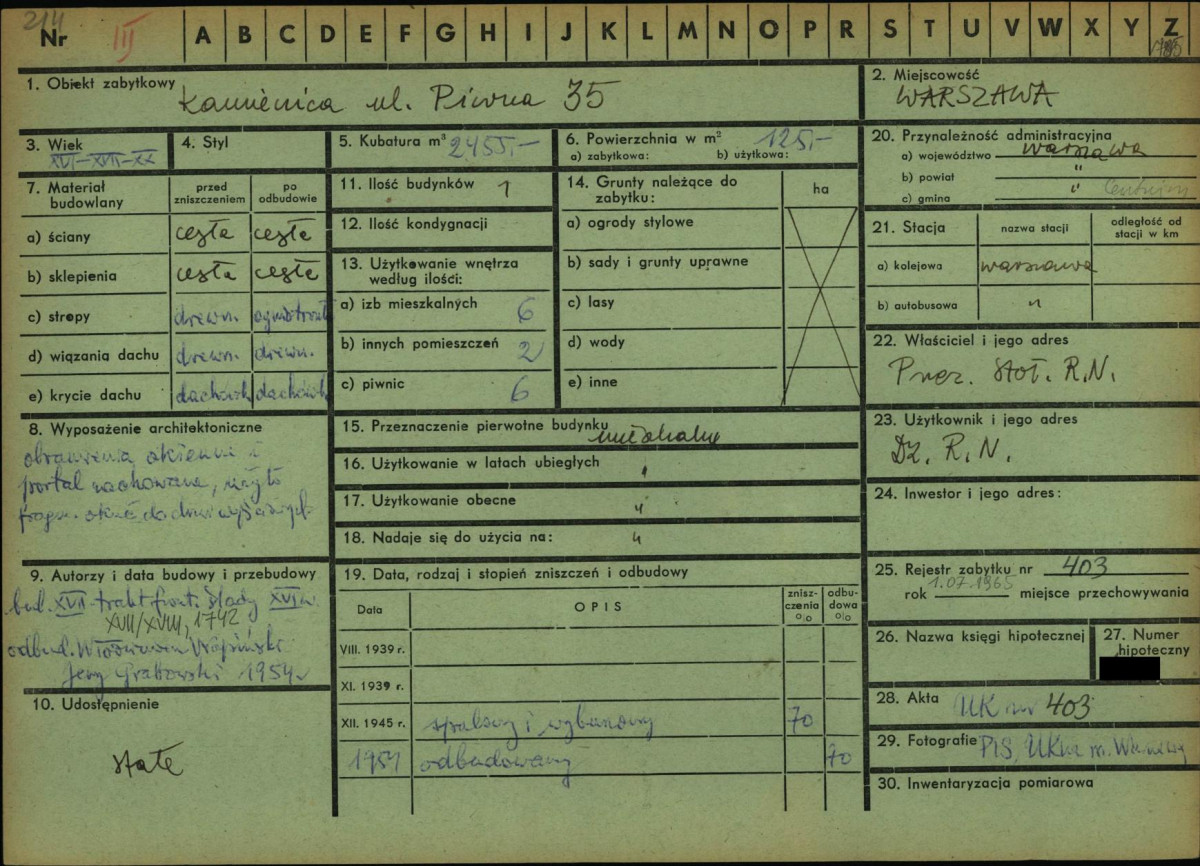 214
Nr III A B C D E F G H I J K L M N O P R S T U V W X Y Z
1. Obiekt zabytkowy Kamienica ul. Piwna 35
2. Miejscowość
WARSZAWA
3. Wiek
XVI-XVII-XX
4. Styl
5. Kubatura m³ 2455,-
6. Powierzchnia w m² 125,-
a) zabytkowa: b) użytkowa:
7. Materiał budowlany
przed zniszczeniem
po odbudowie
a) ściany cegła cegła
b) sklepienia cegła cegła
c) stropy drewn. ogniotrwał
d) wiązania dachu drewn. drewn.
e) krycie dachu dachówk dachówk
8. Wyposażenie architektoniczne
obramienia okienne i
portal zachowane, użyto
fragm.
9. Autorzy i data budowy i przebudowy
bud. XVII trakt front. ślady XVI w.
XVII/XVIII, 1742
odbud. Wapiński
Jerzy Grabowski 1954
10. Udostępnienie
stałe
11. Ilość budynków 1
12. Ilość kondygnacji
13. Użytkowanie wnętrza
według ilości:
a) izb mieszkalnych 6
b) innych pomieszczeń 2
c) piwnic 6
14. Grunty należące do
zabytku:
ha
a) ogrody stylowe
b) sady i grunty uprawne
c) lasy
d) wody
e) inne
15. Przeznaczenie pierwotne budynku mieszkalny
16. Użytkowanie w latach ubiegłych "
17. Użytkowanie obecne "
18. Nadaje się do użycia na: "
19. Data, rodzaj i stopień zniszczeń i odbudowy
Data OPIS znisz-czenia % odbu-dowa %
VIII. 1939 r.
XI. 1939 r.
XII. 1945 r. spalony i wyburzony 70
1954 odbudowany 70
20. Przynależność administracyjna
a) województwo warszawa
b) powiat "
c) gmina "
21. Stacja
nazwa stacji
odległość od
stacji w km
a) kolejowa warszawa
b) autobusowa "
22. Właściciel i jego adres
Prez. Stoł. R.N.
23. Użytkownik i jego adres
Dz. R.N.
24. Inwestor i jego adres:
25. Rejestr zabytku nr 403
rok 1.07.1965 miejsce przechowywania
26. Nazwa księgi hipotecznej
27. Numer
hipoteczny
28. Akta UK nr 403
29. Fotografie PIS, UK m.
30. Inwentaryzacja pomiarowa